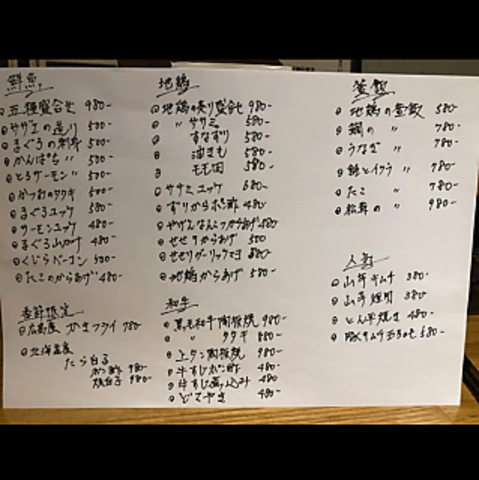 鮮魚
五種盛合せ 980-
サザエの造り 500-
まぐろの刺身 500-
かんぱち 〃 500-
とろサーモン 〃 500-
かつおのタタキ 500-
まぐろユッケ 580-
サーモンユッケ 480-
まぐろ山かけ 480-
くじらベーコン 500-
たこのからあげ 480-
季節限定
広島産 かきフライ 780-
北海道産
たら白子
ポン酢 980-
天白子 980-
地鶏
地鶏の造り盛合せ 980-
〃 ササミ 580-
すなずり 580-
油きも 580-
もも肉 580-
ササミユッケ 580-
ずりからポン酢 480-
やげんなんこつからあげ 480-
せせりからあげ 500
せせりガーリックやき 880-
地鶏からあげ 580-
和牛
黒毛和牛陶板焼 980-
〃 タタキ 880-
上タン陶板焼 980-
牛すじポン酢 480-
牛すじ煮込み 480-
どてやき 480-
釜飯
地鶏の釜飯 580-
鯛の 〃 780-
うなぎ 〃 780-
鮭とイクラ 〃 780-
たこ 〃 780-
松茸の 〃 980-
人気
山芋キムチ 380-
山芋短冊 380-
とん平焼き 480-
豚キムチ 580-